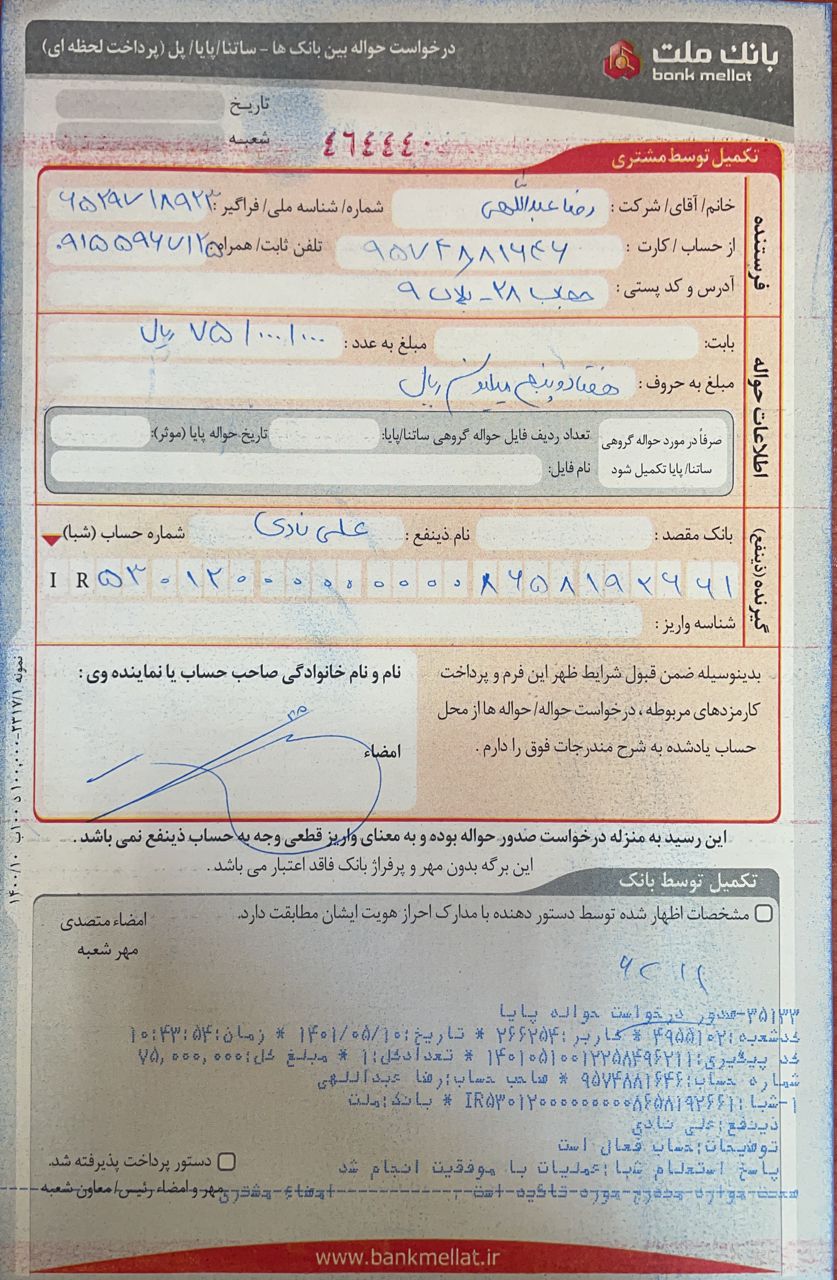 بانک ملت
bank mellat
درخواست حواله بین بانک ها - ساتنا/پایا/ پل (پرداخت لحظه ای)
تاریخ
شعبه
٤٦٤٤٤٠
تکمیل توسط مشتری
فرستنده
خانم/ آقای/ شرکت : رضا عبداللهی شماره/ شناسه ملی/ فراگیر :
از حساب / کارت : ۹۵۷۴۸۸۱۶۴۶ تلفن ثابت/ همراه: ۰۹۱۵۵۹۶۷۱۲۵
آدرس و کد پستی : ۲۸ - پلاک ۹
اطلاعات حواله
بابت: مبلغ به عدد : ۷۵/۰۰۰/۰۰۰ ریال
مبلغ به حروف : هفتاد و پنج میلیون ریال
صرفاً در مورد حواله گروهی ساتنا/ پایا تکمیل شود
تعداد ردیف فایل حواله گروهی ساتنا/پایا: تاریخ حواله پایا (موثر):
نام فایل:
گیرنده (ذینفع)
بانک مقصد : نام ذینفع : علی نادی شماره حساب (شبا)
IR ۵۳۰۱۲۰۰۰۰۰۰۰۰۰۰۸۶۵۸۱۹۲۶۶۱
شناسه واریز :
بدینوسیله ضمن قبول شرایط ظهر این فرم و پرداخت
کارمزدهای مربوطه ، درخواست حواله/ حواله ها از محل
حساب یادشده به شرح مندرجات فوق را دارم .
نام و نام خانوادگی صاحب حساب یا نماینده وی :
امضاء
این رسید به منزله درخواست صدور حواله بوده و به معنای واریز قطعی وجه به حساب ذینفع نمی باشد .
این برگه بدون مهر و پرفراژ بانک فاقد اعتبار می باشد .
تکمیل توسط بانک
مشخصات اظهار شده توسط دستور دهنده با مدارک احراز هویت ایشان مطابقت دارد.
امضاء متصدی
مهر شعبه
۳۵۱۳۳-صدور درخواست حواله پایا
کدشعبه:۴۹۵۵۱۰۲ * کاربر:۲۶۶۲۵۴ * تاریخ:۱۴۰۱/۰۵/۱۰ * زمان:۱۰:۴۳:۵۴
کد پیگیری:۱۴۰۱۰۵۱۰۰۱۲۲۵۸۴۹۶۲۱۱ * تعدادکل:۱ * مبلغ کل:۷۵,۰۰۰,۰۰۰
شماره حساب:۹۵۷۴۸۸۱۶۴۶ * صاحب حساب:رضا عبداللهی
۱-شبا:IR۵۳۰۱۲۰۰۰۰۰۰۰۰۰۰۸۶۵۸۱۹۲۶۶۱ * بانک:ملت
ذینفع:علی نادی
توضیحات:حساب فعال است
پاسخ استعلام شبا:عملیات با موفقیت انجام شد
صحت موارد مندرج مورد تائید است امضاء مشتری
دستور پرداخت پذیرفته شد.
مهر و امضاء رئیس/ معاون شعبه
www.bankmellat.ir